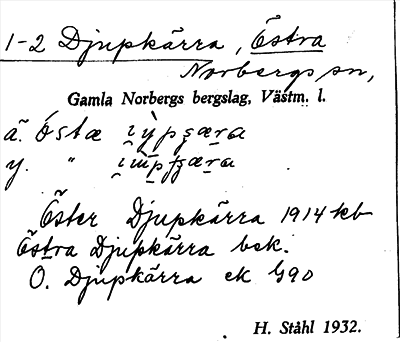 1-2 Djupkärra, Östra
Norbergs sn,
Gamla Norbergs bergslag, Västm. l.
ä. östæ
y. "
Öster Djupkärra 1914 kb
Östra Djupkärra bsk.
Ö. Djupkärra ek G90
H. Ståhl 1932.